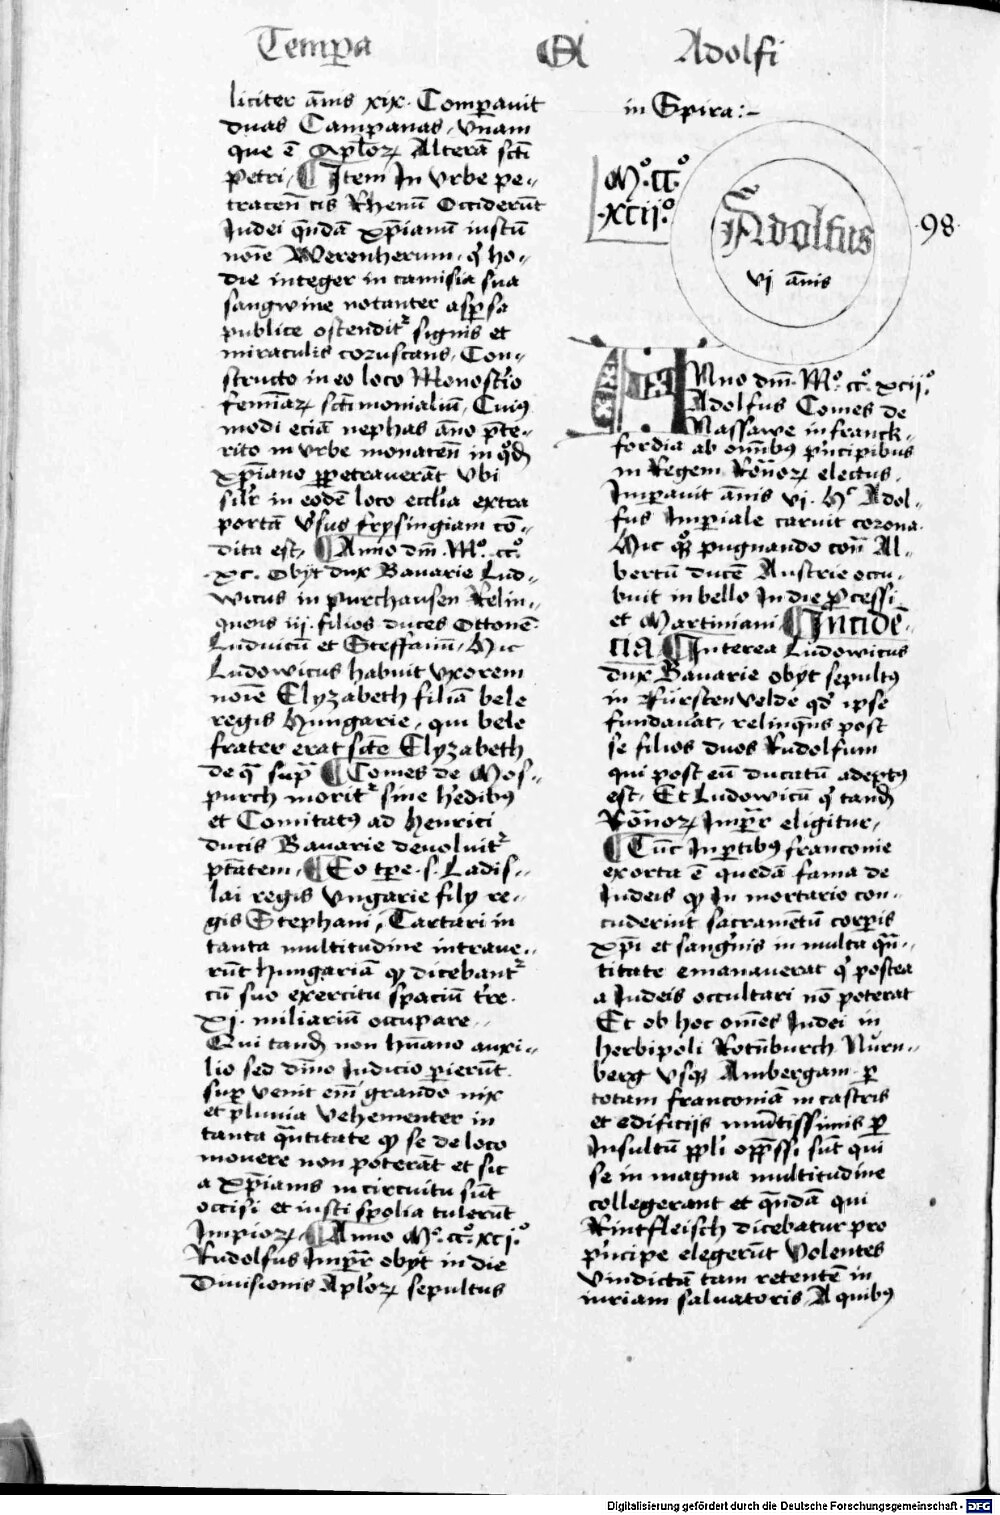 Tempora Et Adolfi
liciter ān̄is xix. Comparavit
duas Campanas, Vnam
que ē Apl'oꝝ Alterā sc̄ti
petri, ¶ Item In Vrbe pe-
tracen̄ cis Rhenū Occiderūt
Judei quēdā xp̄ianū iustū
noīe Werenherum, qͥ ho-
die integer in camisia sua
sangwine notanter asp̄sa
publice ostendit᷑ signis et
miraculis coruscans, Con-
structo in eo loco Monost'io
femīaꝝ sc̄timonialiū, Cuiꝰ
modi eciā nephas āno p̄te-
rito in Vrbe monaceñ in qͦdā
xp̄iano ꝑpetraverāt Vbi
sil'r in eodē loco eccl'ia extra
portā V'sus frysingiam cō-
dita est, ¶ Anno dm̄. Mͦ. ccͦ.
xc. Obijt dux Bavarie Lud-
wicus in purchausen Relin-
quens iij. filios duces Ottonē
Luduicū et Steffanū, Hic
Ludowicus habuit Vxorem
noīe Elyzabeth filiā bele
regis Hungarie, qui bele
frater erat sc̄te Elyzabeth
de qͣ supͣ ¶ Comes de Mos-
purch morit᷑ sine h'edibꝰ
et Comitatꝰ ad Henrici
ducis Bavarie devoluit᷑
ptātem, ¶ Eo tp̄e .s. Ladis-
lai regis Vngarie filij re-
gis Stephani, Tartari in
tanta multitudine intrave-
rūt Hungariā qͥ dicebant᷑
cū suo exercitu spaciū t're.
xj. miliariū occupare,
Qui tandē non hūano auxi-
lio sed dīno Judicio ꝑierūt.
supervenit enī grando nix
et pluvia Vehementer in
tanta qūntitate qͥ se de loco
movere non poterāt et sic
a xp̄ianis in circuitu sūt
occisi et iusti spolia tulerūt
Impioꝝ, ¶ Anno Mͦ. ccͦ. xcjͦ.
Rudolfus Imp̄r obijt in die
Divisionis Apl'oꝝ sepultus
in Spira:-
Mͦ.ccͦ.
.xcijͦ.
Adolfus
vj ān̄is
98.
Anno dm̄. Mͦ. ccͦ. xcijͦ.
Adolfus Comes de
Nassawe in franck-
fordia ab om̄ibꝰ p'ncipibus
in Regem Rōnoꝝ electus,
Imꝑavit ān̄is vj. Hͨ Adol-
fus Imꝑiale caruit corona.
Hic qͦꝫ pugnando cont̄ Al-
bertū ducē Austrie occu-
buit in bello In die ꝓcessi
et Martiniani ¶ Incidē-
cia, ¶ Interea Ludowicus
dux Bavarie obijt sepultꝰ
in Fürstenvelde qd' ipse
fundavat, relinquēs post
se filios duos Rudolfum
qui post eū ducatū adeptꝰ
est, Et Ludowicū qͥ tandē
Rōnoꝝ Imp̄r eligitur,
¶ Tūc In ꝑtibꝰ franconie
exorta ē quedā fama de
Judeis qͥ In mortario con-
cuderint sacramētū corꝑis
xp̄i et sang'nis in multa qūn-
titate emanaverat qͥ postea
a Judeis occultari nō poterat
Et ob hoc om̄es Judei in
herbipoli Rotēburch Nürn-
berg Vsqꝫ Ambergam ꝑ
totam franconiā in castris
et edificijs munītissimis ꝑ
Insultū ppl'i opp̄ssi sūt qui
se in magna multitudine
collegerant et quēdā qui
Rintfleisch dicebatur pro
p'ncipe elegerūt Volentes
Vindictā tam retentē in
iuriam salvatoris, A quibꝰ
Digitalisierung gefördert durch die Deutsche Forschungsgemeinschaft - DFG